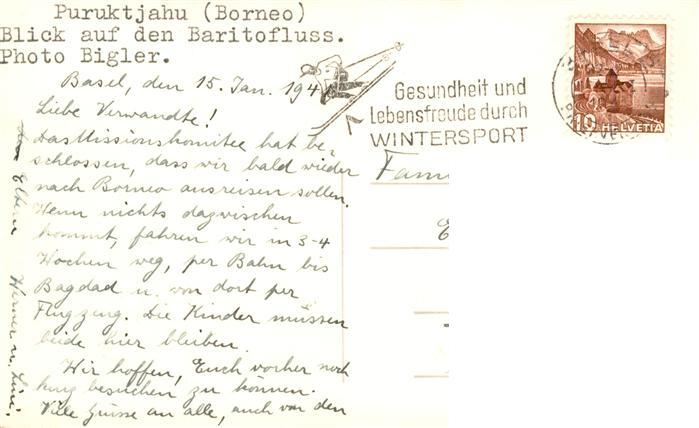 Puruktjahu (Borneo)
Blick auf den Baritofluss.
Photo Bigler.
Basel, den 15. Jan. 194
Liebe Verwandte!
Das Missionskomitee hat be
schlossen, dass wir bald wieder
nach Borneo ausreisen sollen.
Wenn nichts dazwischen
kommt, fahren wir in 3-4
Wochen weg, per Bahn bis
Bagdad u. von dort per
Flugzeug. Die Kinder müssen
beide hier bleiben.
Wir hoffen, Euch vorher noch
kurz besuchen zu können.
Viele Grüsse an alle, auch von den
Eltern Werner u. Lini.
Gesundheit und
Lebensfreude durch
WINTERSPORT
10 HELVETIA
Fam